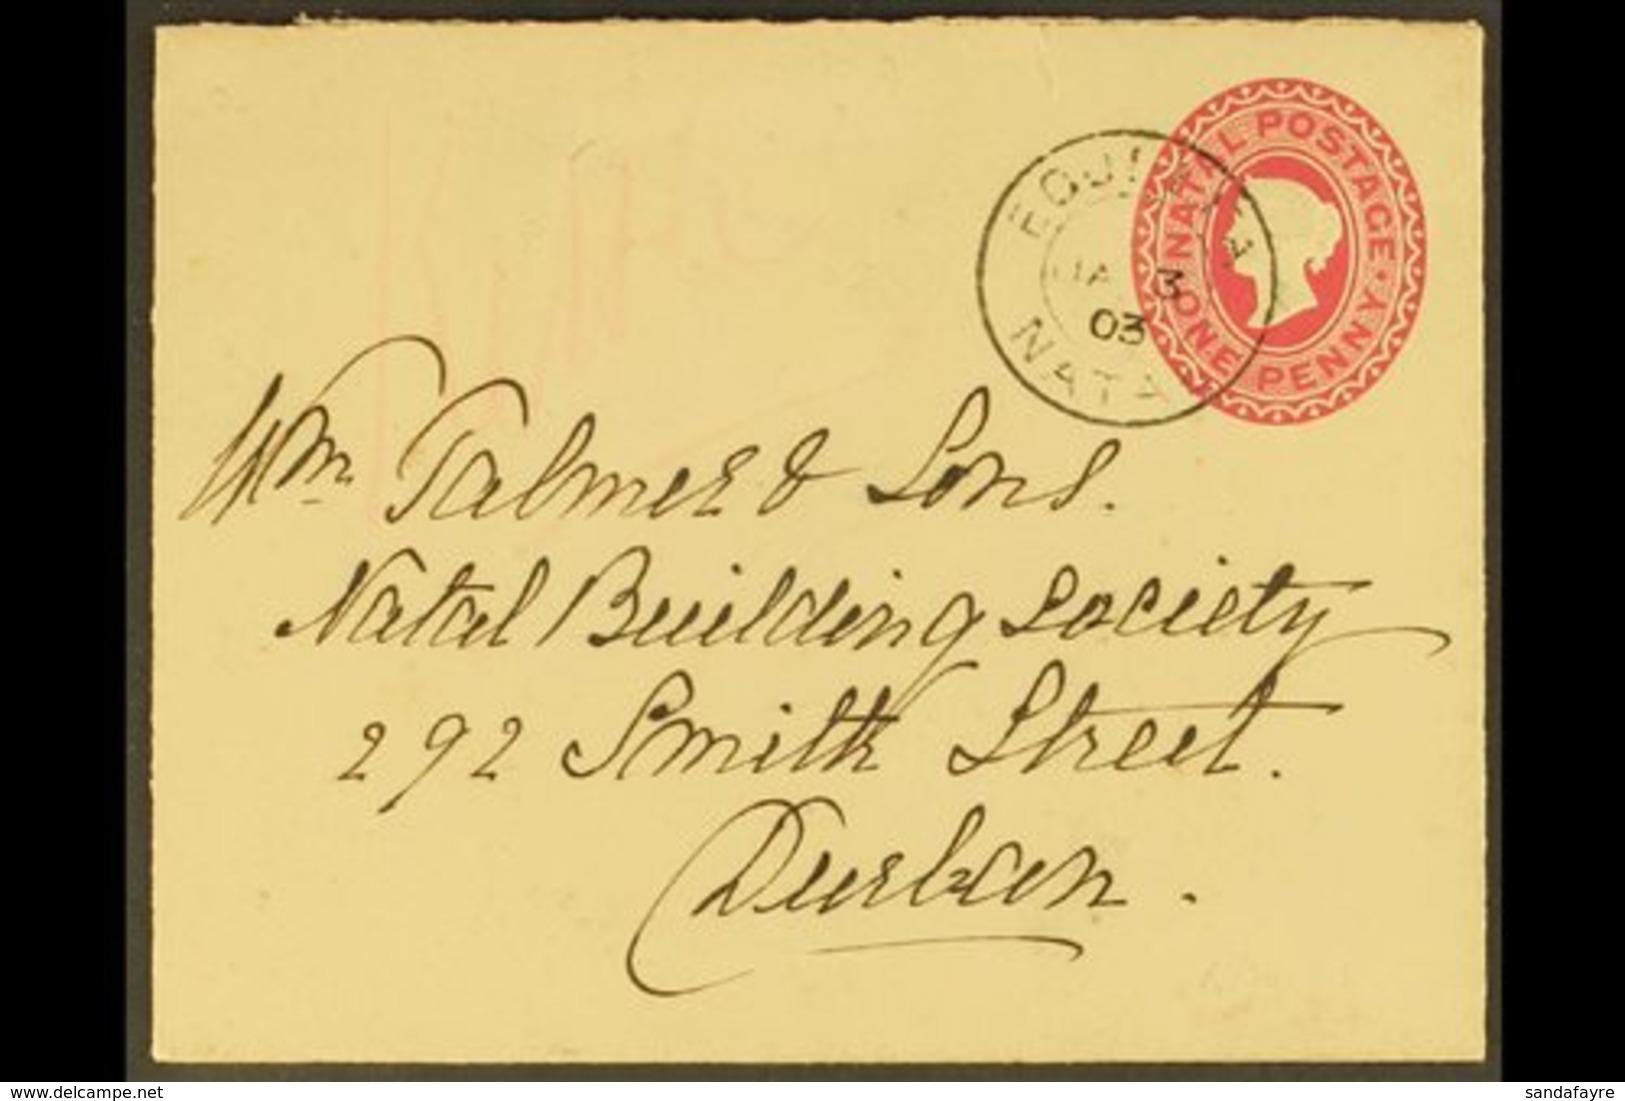 NATAL POSTAGE.
ONE PENNY.
JA 3
03
NATA
Wm Palmer & Sons.
Natal Building Society
292 Smith Street.
Durban.
www.delcampe.net
sandafayre